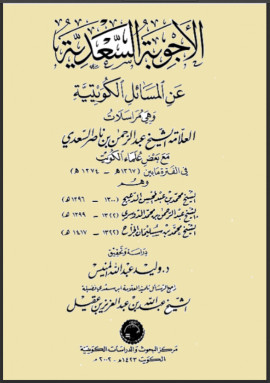 الأجوبة السعدية
عن المسائل الكويتية
وهي مراسلات
العلامة الشيخ عبد الرحمن بن ناصر السعدي
مع بعض علماء الكويت
في الفترة ما بين (١٣٦٧هـ - ١٣٧٤هـ)
وهم
الشيخ محمد بن عبد المحسن الدعيج (١٣٠٠ - ١٣٩٦هـ)
الشيخ عبد الرحمن بن محمد الدوسري (١٣٣٢ - ١٣٩٩هـ)
الشيخ محمد بن سليمان الجراح (١٣٢٢ - ١٤١٧هـ)
دراسة وتحقيق
د. وليد عبد الله المنيس
الشيخ عبد الله بن عبد العزيز بن عقيل
مركز البحوث والدراسات الكويتية
الكويت ١٤٢٣هـ - ٢٠٠٢م